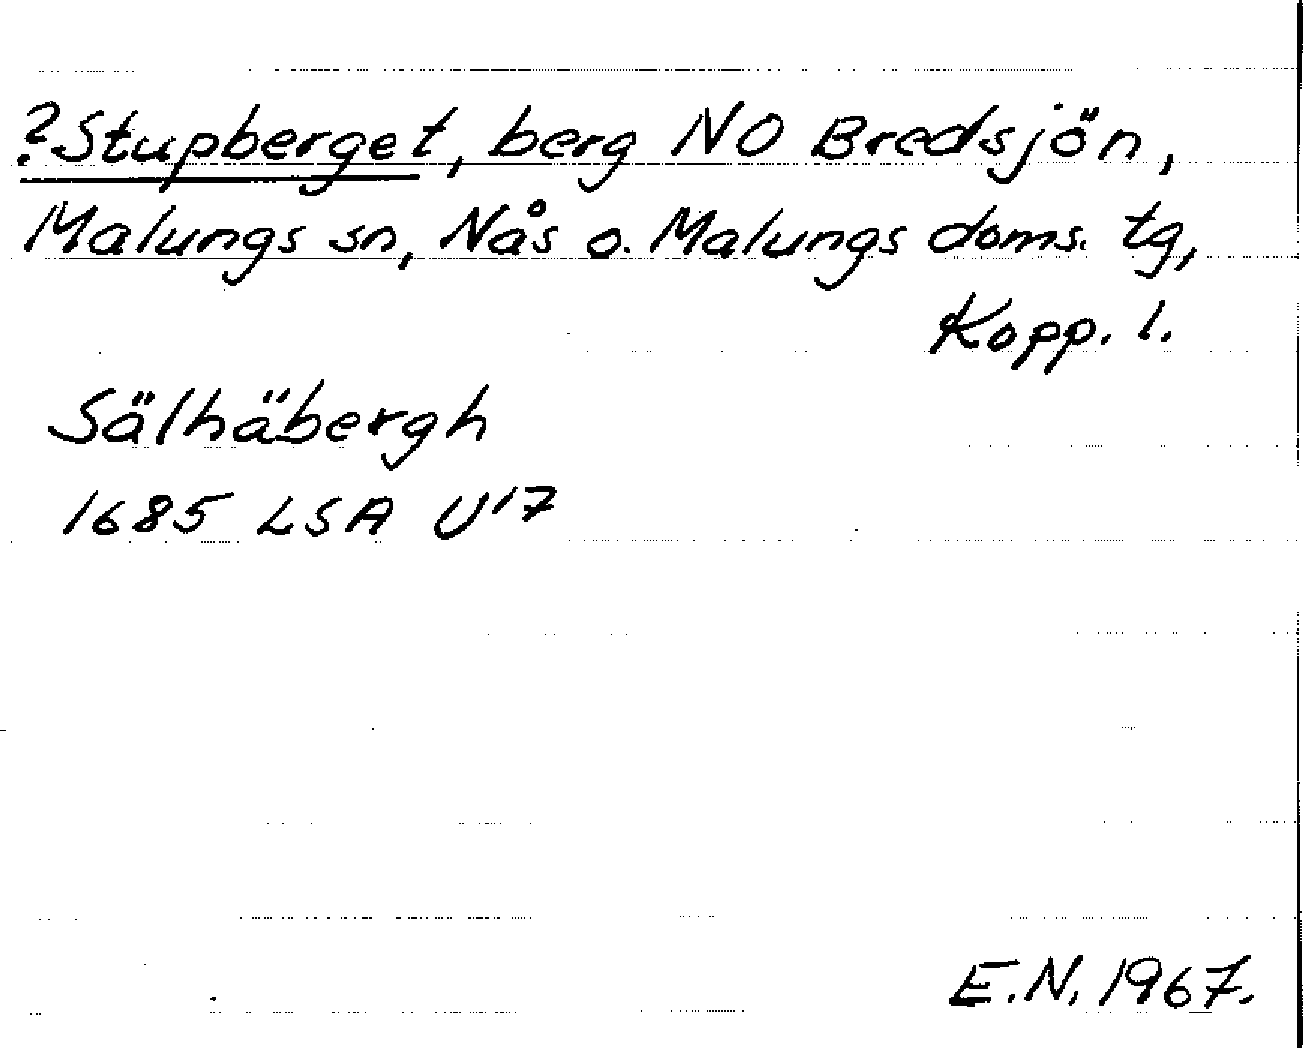 ?Stupberget, berg NO Bredsjön,
Malungs sn, Nås o. Malungs doms. tg,
Kopp. l.
Sälhäbergh
1685 LSA U 17
E.N. 1967.